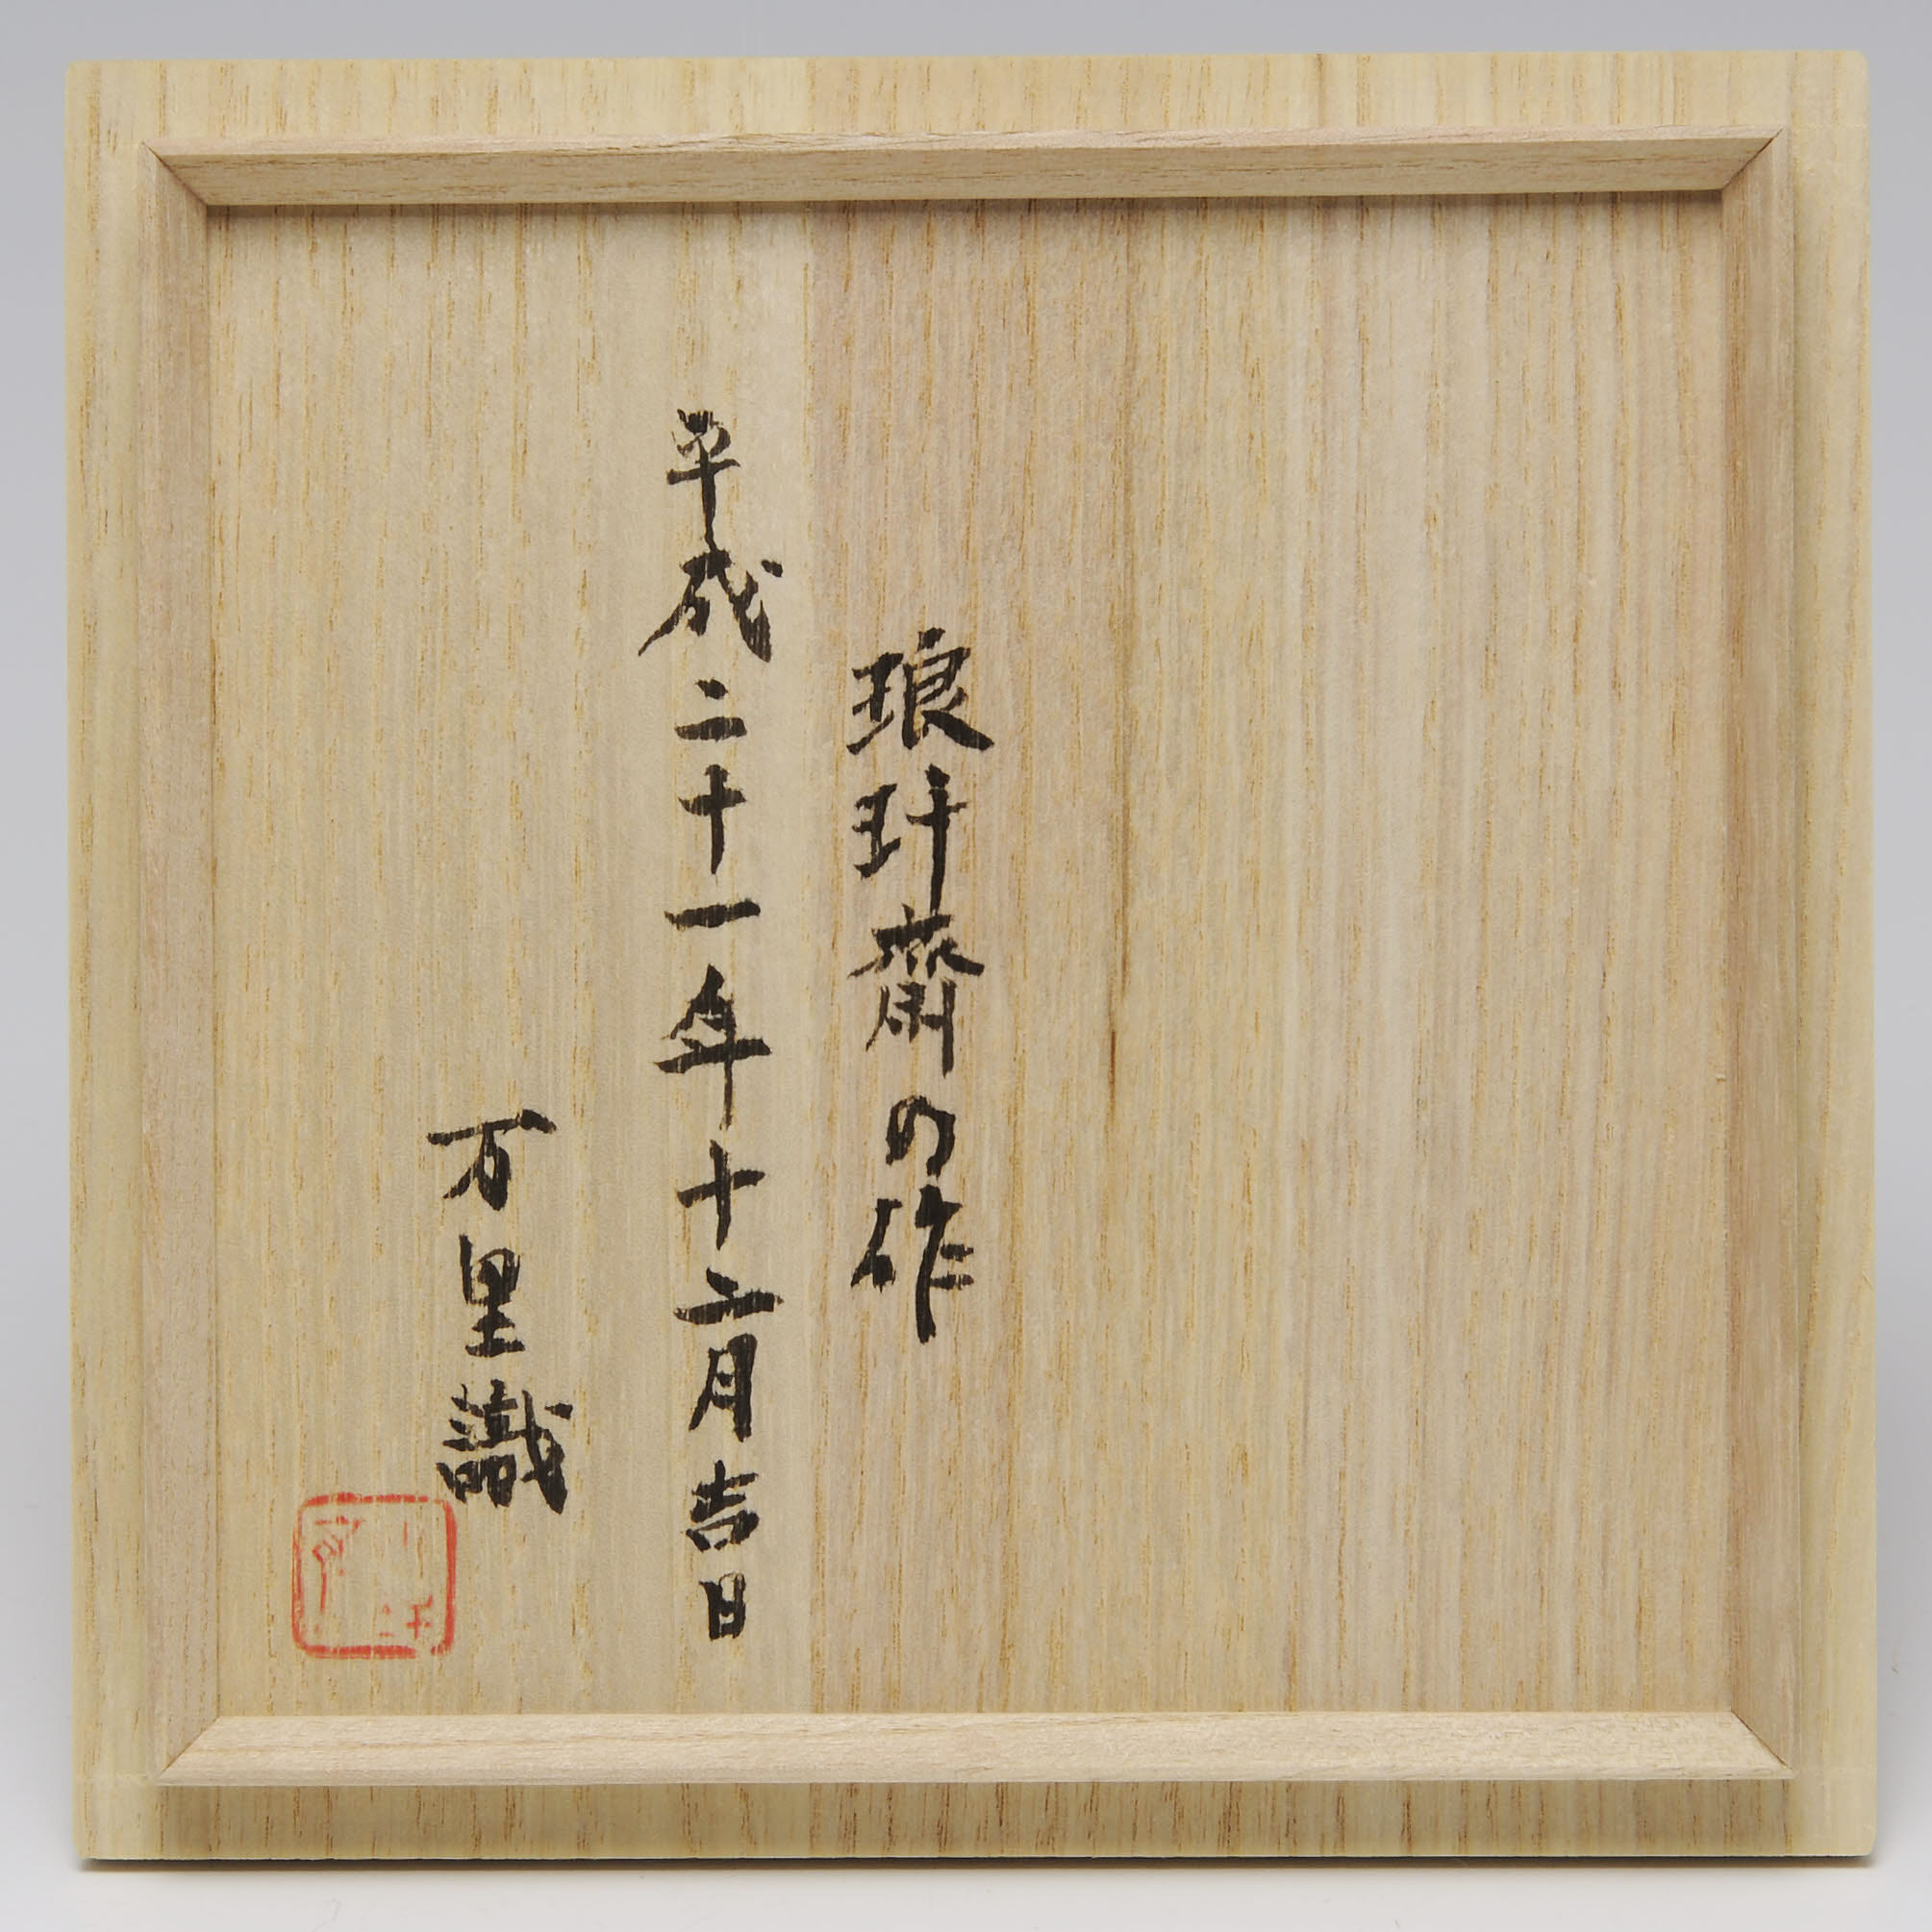 琅玕齋の作
平成二十一年十二月吉日
万里識